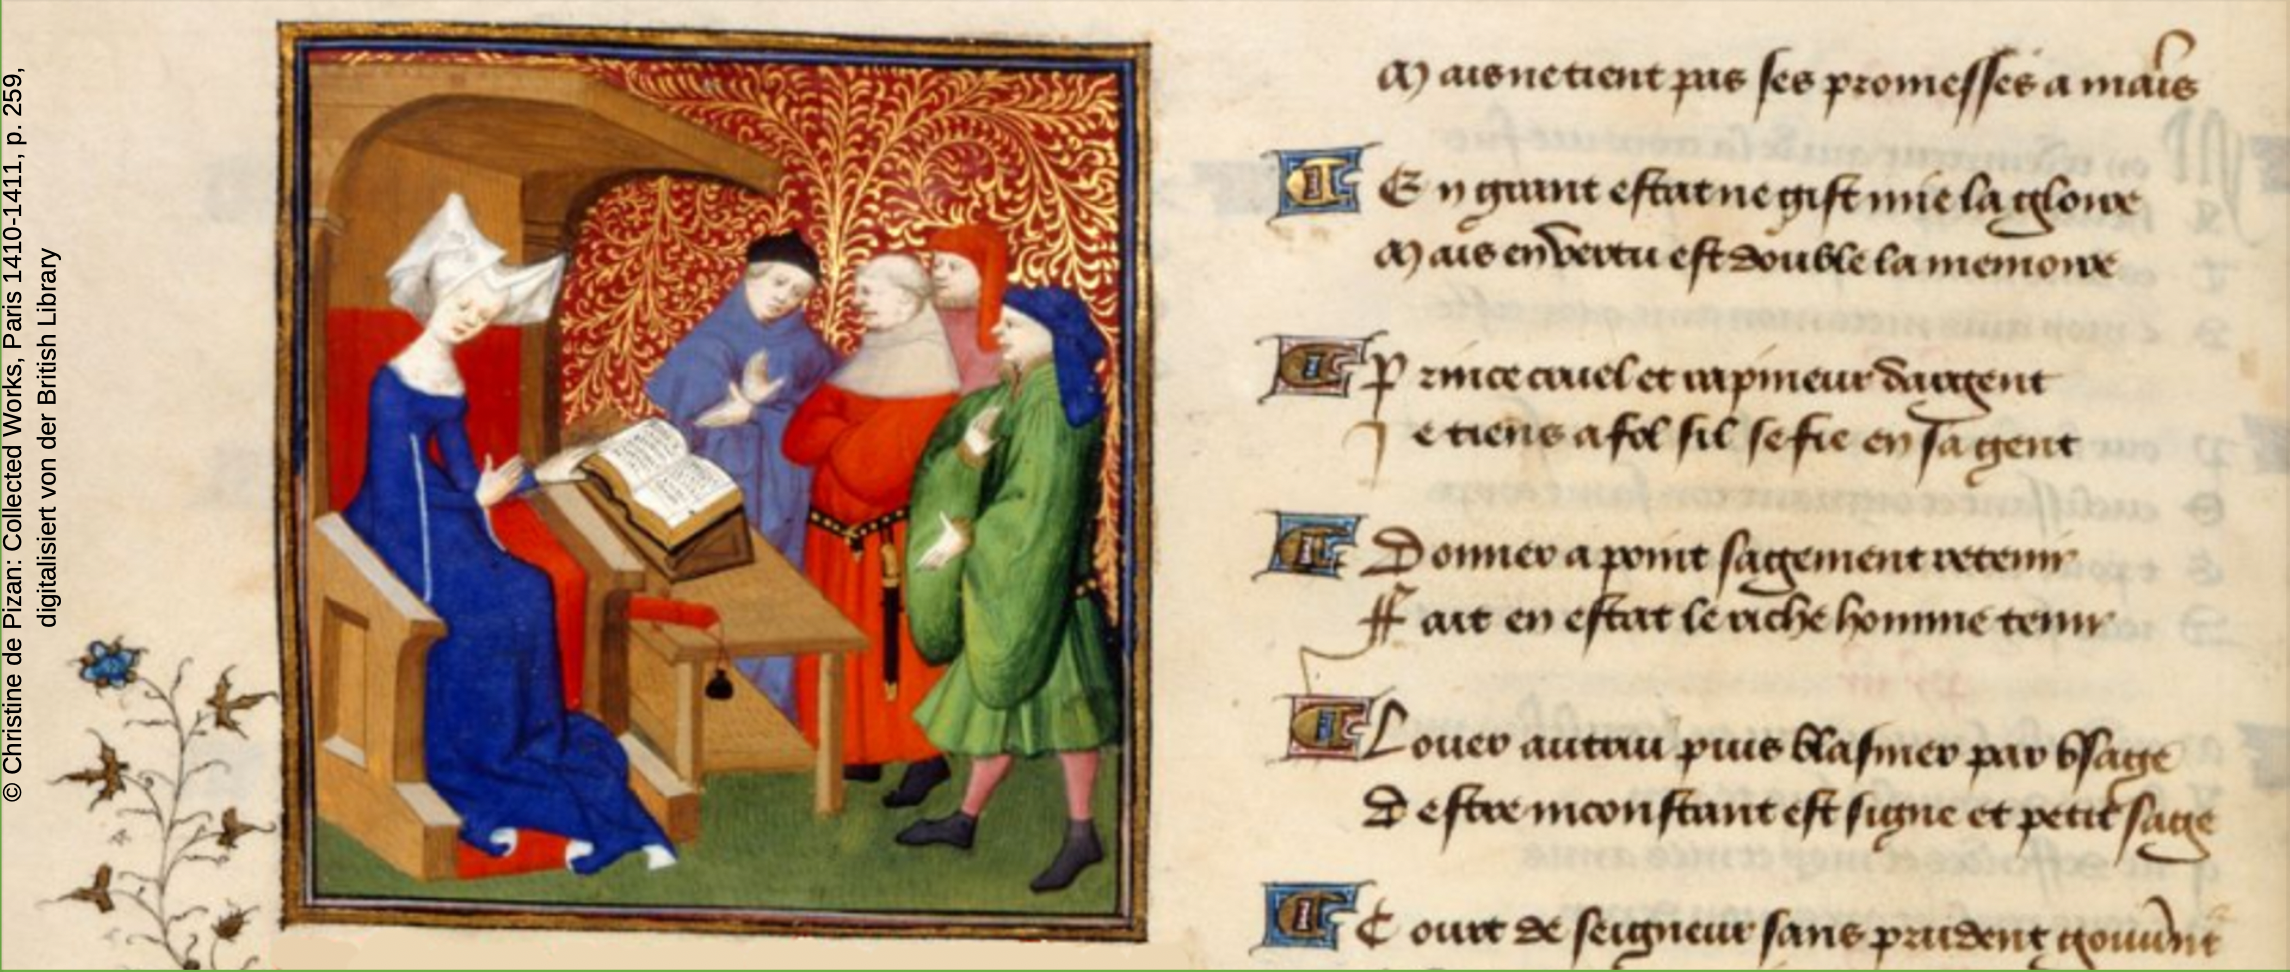 © Christine de Pizan: Collected Works, Paris 1410-1411, p. 259,
digitalisiert von der British Library
Mais ne tient pas ses promesses a mais
En grant estat ne gist mie la gloire
Mais en vertu est double la memoire
Prince cruel et rapineur dargent
Je tiens a fol sil se fie en sa gent
Donner a point sagement retenir
Ffait en estat le riche homme tenir
Louer autrui puis blasmer par vsage
Destre inconstant est signe et petit sage
Court de seigneur sans prudent